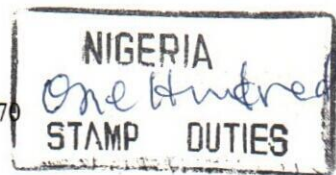 NIGERIA
One Hundred
70
STAMP DUTIES